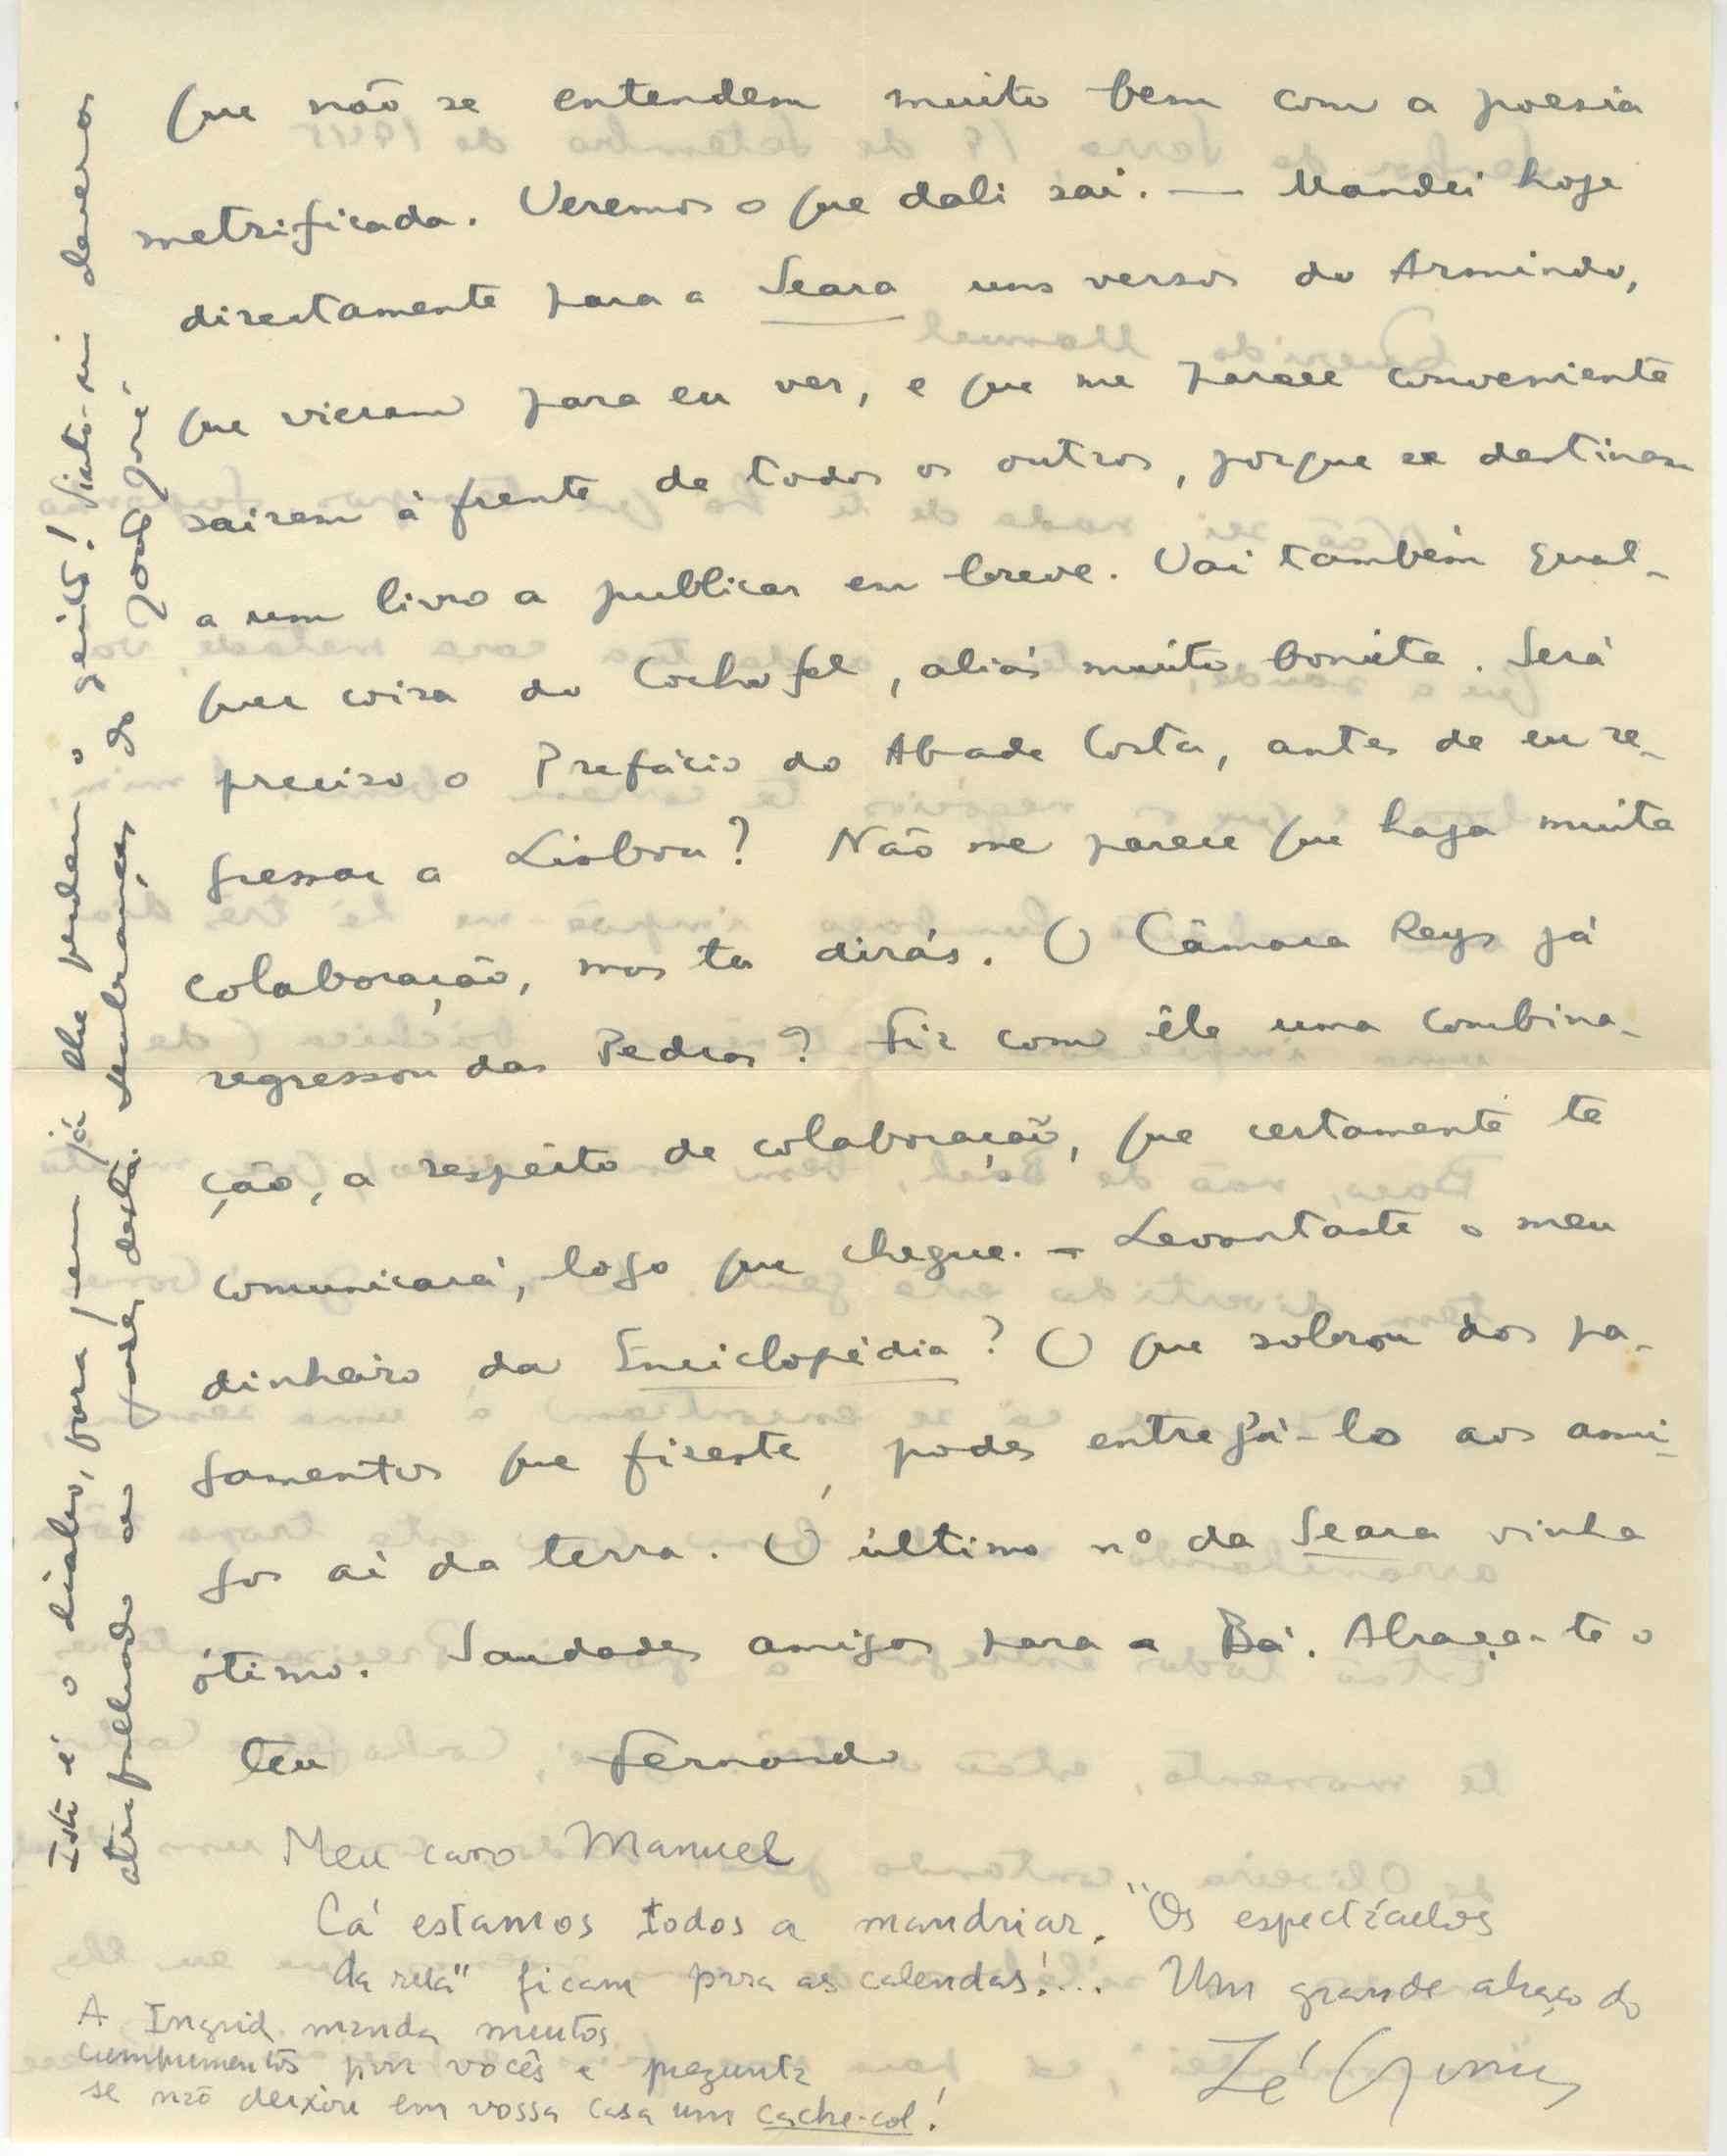 que não se entendem muito bem com a poesia
metrificada. Veremos o que dali sai. — Mandei hoje
directamente para a Seara uns versos do Armindo,
que vieram para eu ver, e que me parece conveniente
sairem à frente de todos os outros, porque se destinam
a um livro a publicar em breve. Vai também qual-
quer coisa do Cochofel, aliás muito bonita. Será
preciso o Prefácio do Abade Costa, antes de eu re-
gressar a Lisboa? Não me parece que haja muita
colaboração, mas tu dirás. O Câmara Reys já
regressou das Pedras? Fiz com êle uma combina-
ção, a respeito de colaboração, que certamente te
comunicará, logo que chegue. — Levantaste o meu
dinheiro da Enciclopédia? O que sobrou dos pa-
gamentos que fizeste, podes entregá-lo aos ami-
gos aí da terra. O último nº da Seara vinha
ótimo. Saudades amigas para a Bá. Abraça-te o
teu Fernando
Meu caro Manuel
Cá estamos todos a mandriar. "Os espectáculos
da rua" ficam pra as calendas!... Um grande abraço do
Zé Gomes
A Ingrid manda muitos
cumprimentos pra vocês e pregunta
se não deixou em vossa casa um cache-col!
Isto é o diabo, para quem já lhe perdeu o geito! Sinto-me deveras
atrapalhado ao fazer desta. Lembranças do José José.